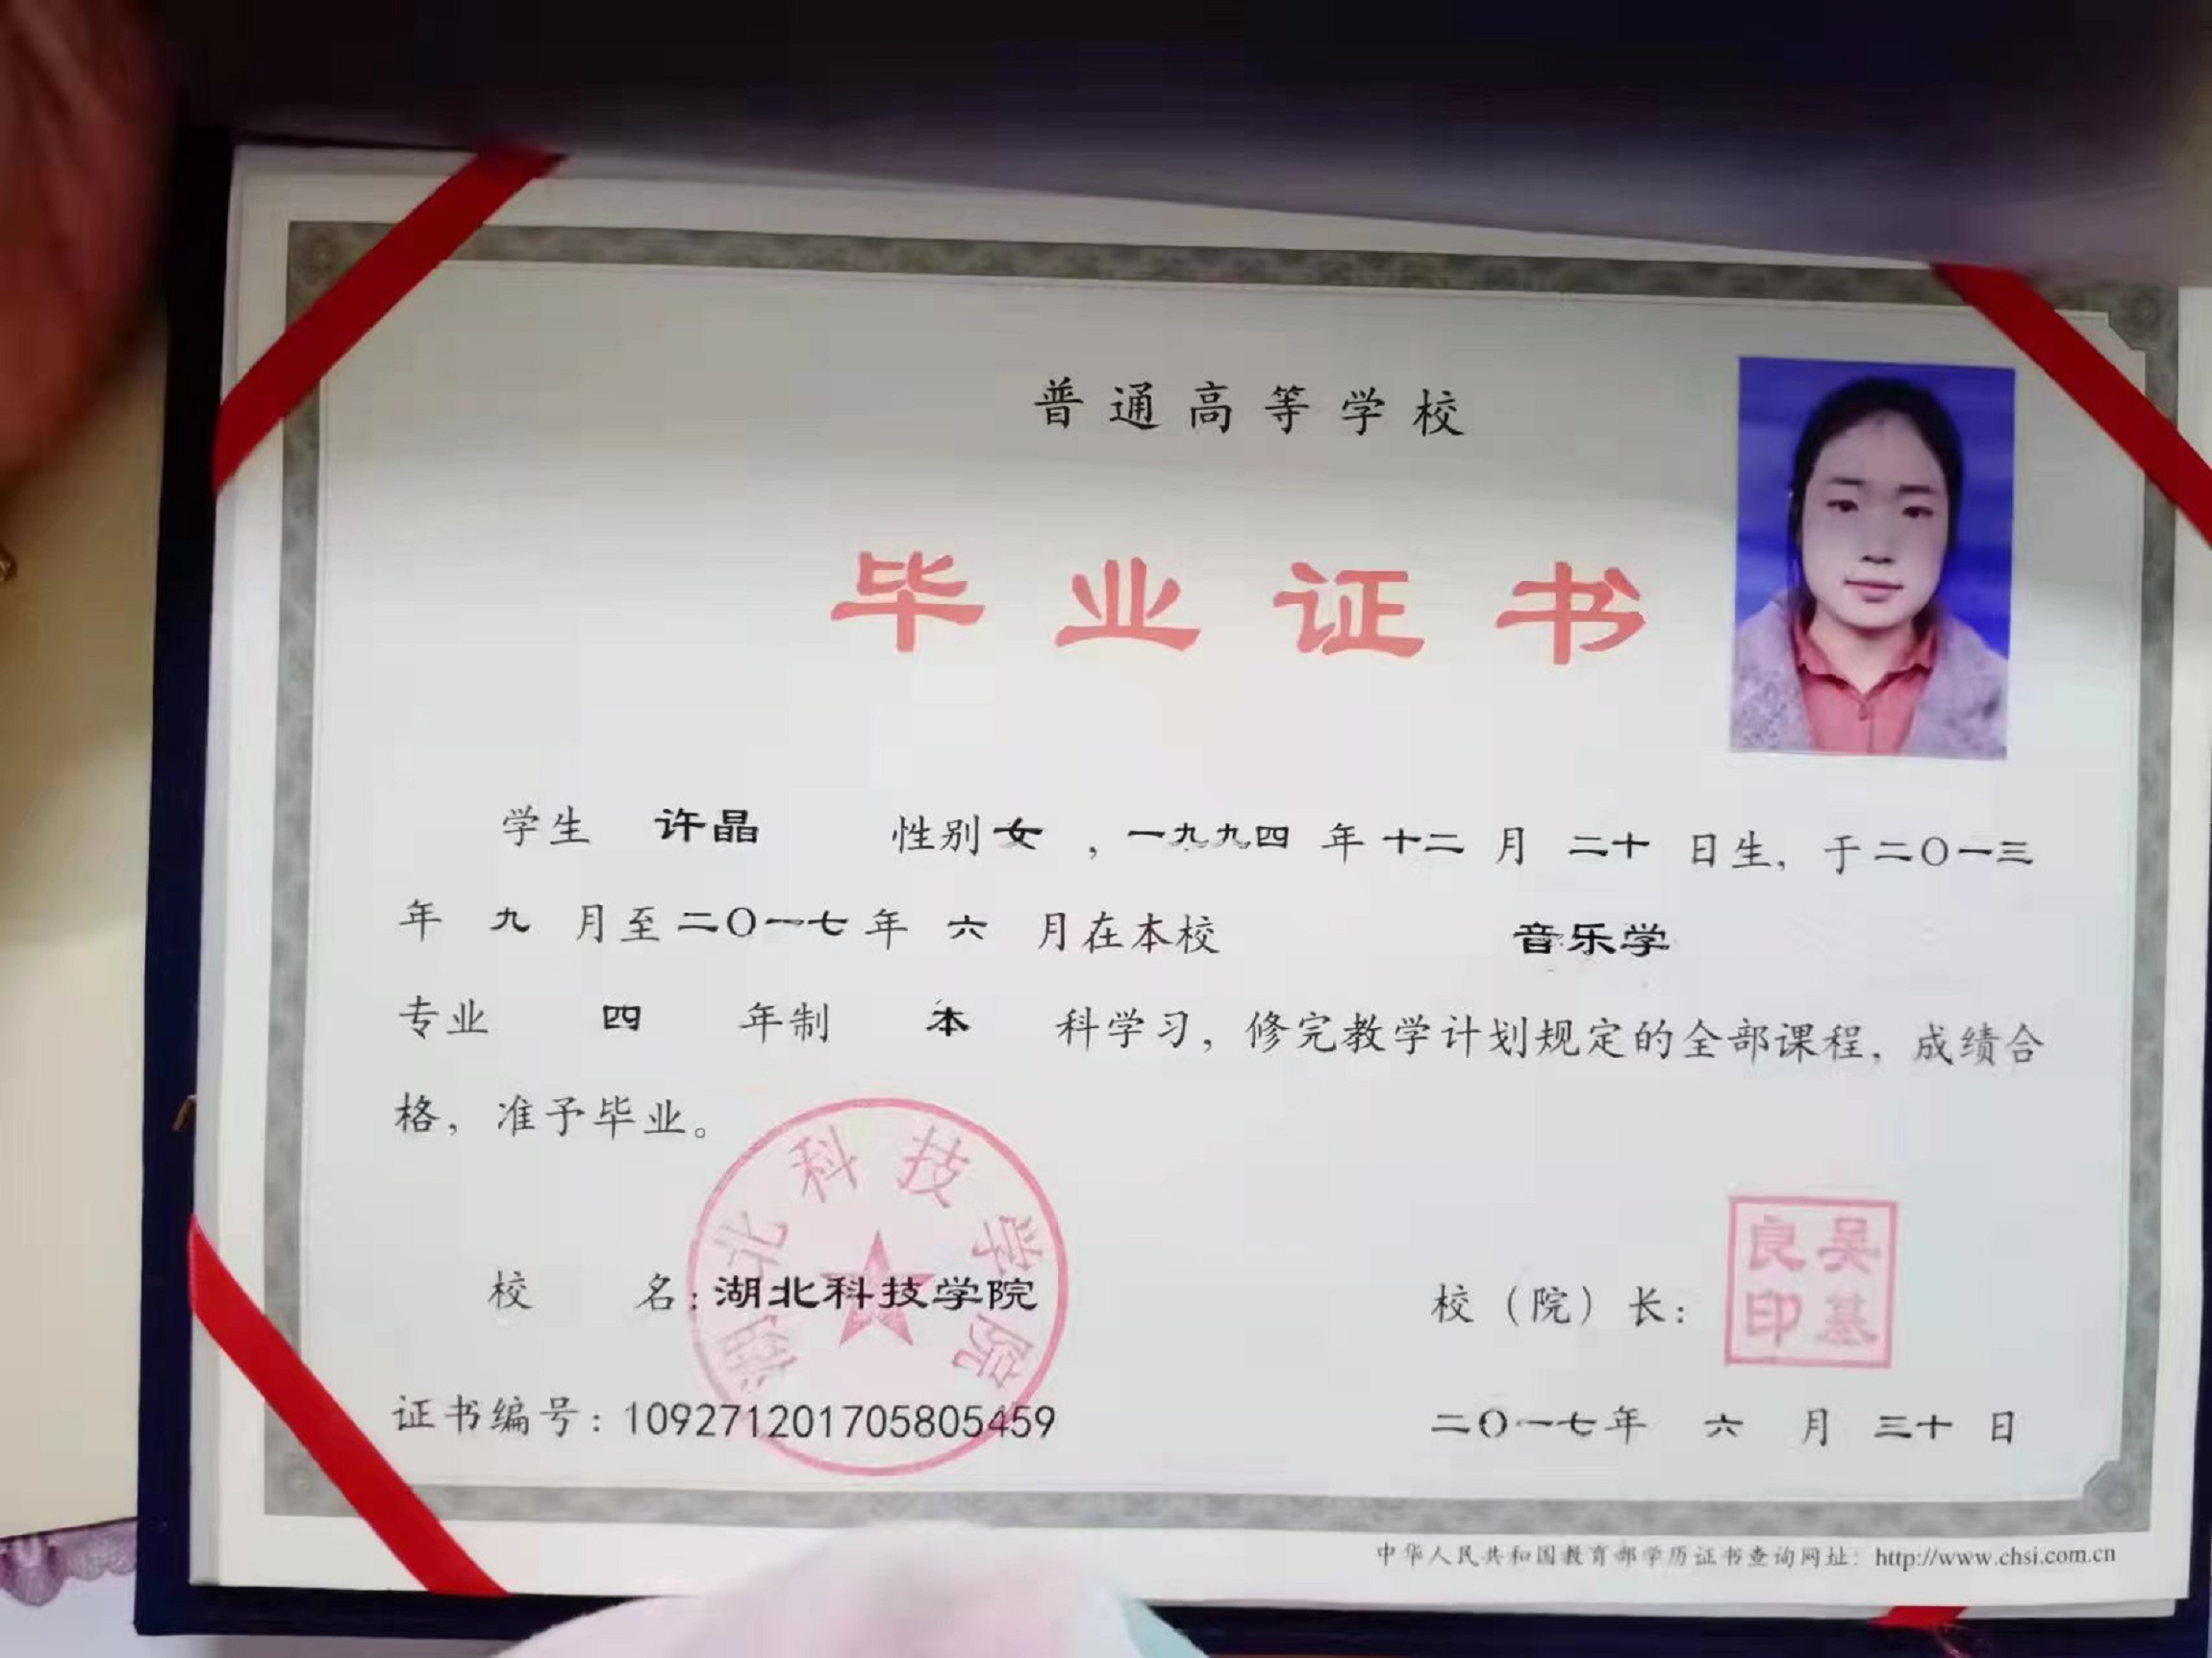 普通高等学校
毕业证书
学生 许晶 性别 女 ，一九九四 年 十二 月 二十 日生，于二〇一三
年 九 月至二〇一七年 六 月在本校 音乐学
专业 四 年制 本 科学习，修完教学计划规定的全部课程，成绩合
格，准予毕业。
湖北科技学院
校 名：湖北科技学院
校（院）长：
吴基良印
证书编号：109271201705805459
二〇一七年 六 月 三十 日
中华人民共和国教育部学历证书查询网址：http://www.chsi.com.cn